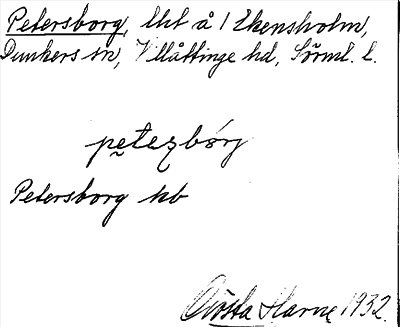 Petersborg, lht å 1 Ekensholm,
Dunkers sn, Villåttinge hd, Sörml. l.
petezbórj
Petersborg hb
Gösta Harne 1932.